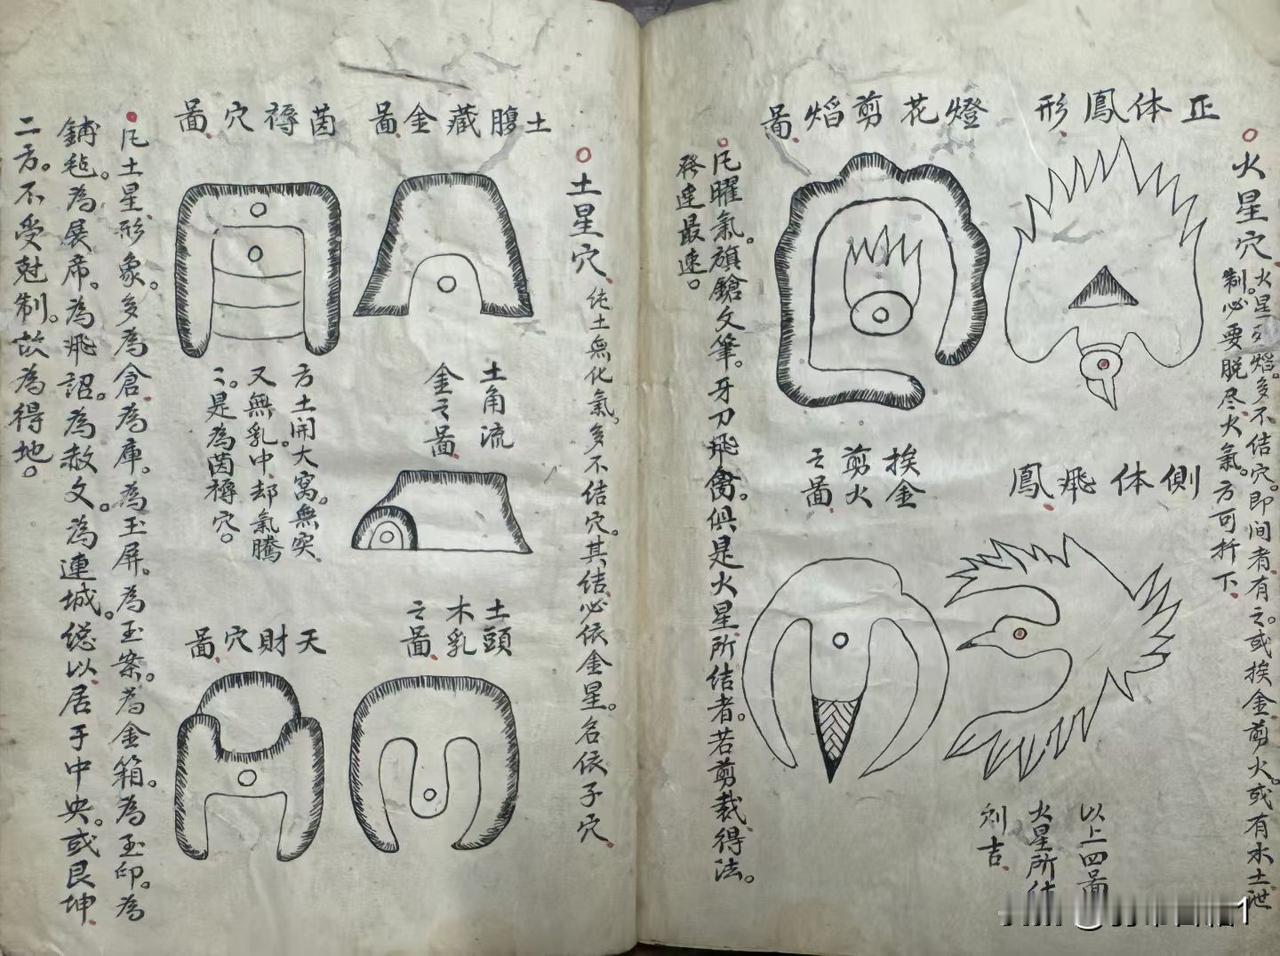 火星穴
火星烈焰。多不结穴。即间有者有之。或挨金剪火或有水土泄
制。必要脱尽火氣。方可扦下。
正体鳳形
燈花剪焰圖
側体飛鳳
挨金
剪火
之圖
以上四圖
火星所结
则吉
凡曜氣。旗鎗文筆。牙刀飛禽。俱是火星所结者。若剪裁得法。
發達最速。
土星穴
純土無化氣。多不结穴。其结必依金星。名依子穴
土腹藏金圖
茵褥穴圖
土角流
金之圖
方土開大窩。無突
又無乳中。却氣騰
二。是為茵褥穴。
土頭
木乳
之圖
天財穴圖
凡土星形象。多為倉。為庫。為玉屏。為玉案。為金箱。為玉印。為
鋪毡。為展席。為飛詔。為赦文。為連城。總以居于中央。或艮坤
二方。不受尅制。故為得地。